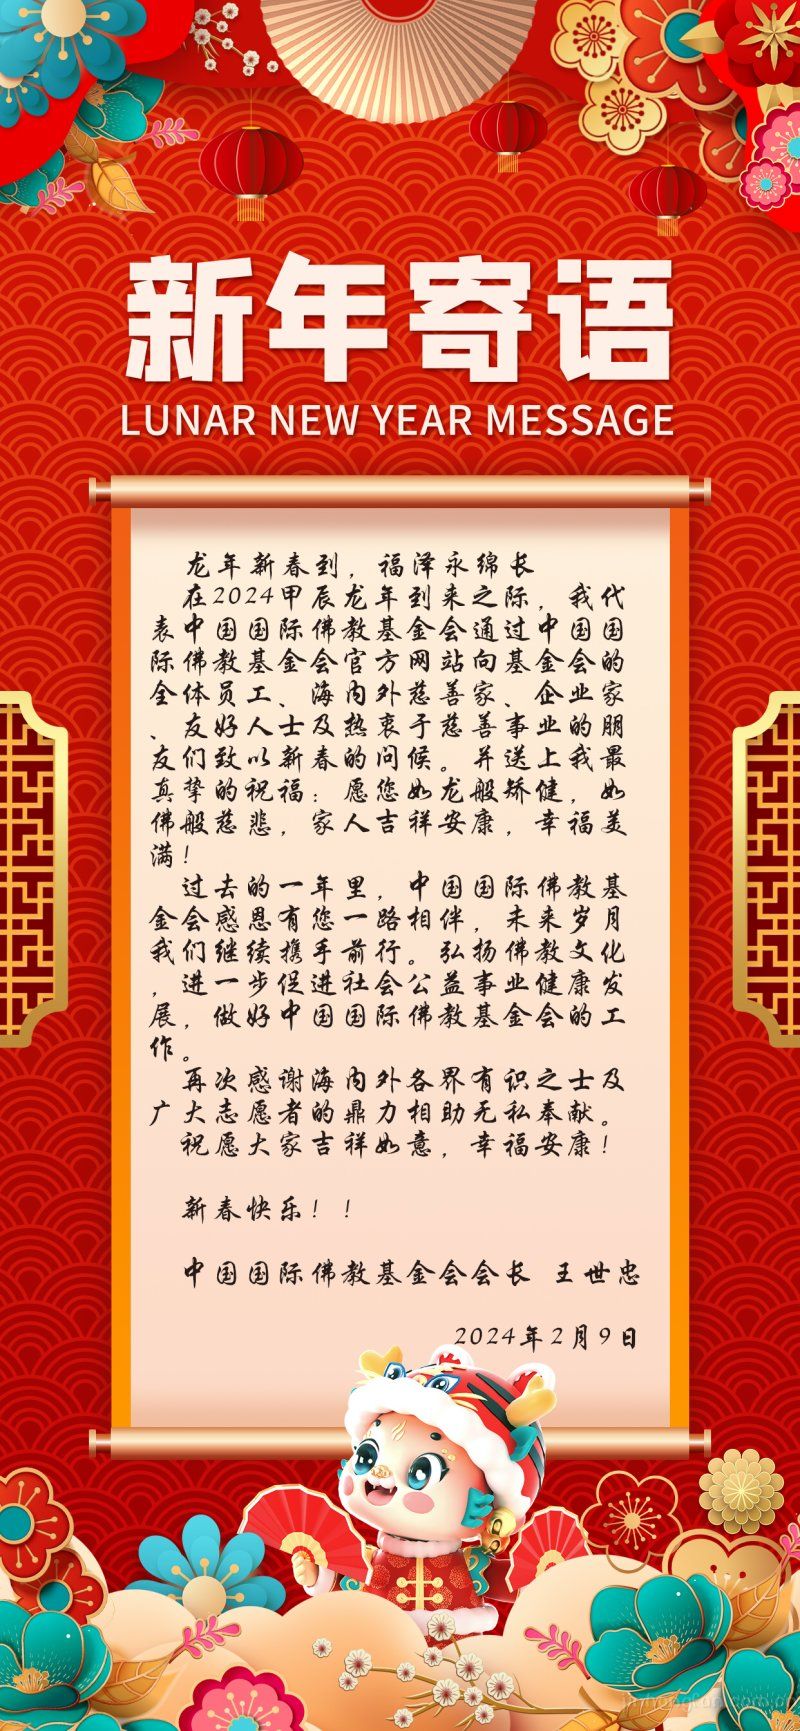 新年寄语
LUNAR NEW YEAR MESSAGE
龙年新春到，福泽永绵长
在2024甲辰龙年到来之际，我代
表中国国际佛教基金会通过中国国
际佛教基金会官方网站向基金会的
全体员工、海内外慈善家、企业家
、友好人士及热衷于慈善事业的朋
友们致以新春的问候。并送上我最
真挚的祝福：愿您如龙般矫健，如
佛般慈悲，家人吉祥安康，幸福美
满！
过去的一年里，中国国际佛教基
金会感恩有您一路相伴，未来岁月
我们继续携手前行。弘扬佛教文化
，进一步促进社会公益事业健康发
展，做好中国国际佛教基金会的工
作。
再次感谢海内外各界有识之士及
广大志愿者的鼎力相助无私奉献。
祝愿大家吉祥如意，幸福安康！
新春快乐！！
中国国际佛教基金会会长 王世忠
2024年2月9日